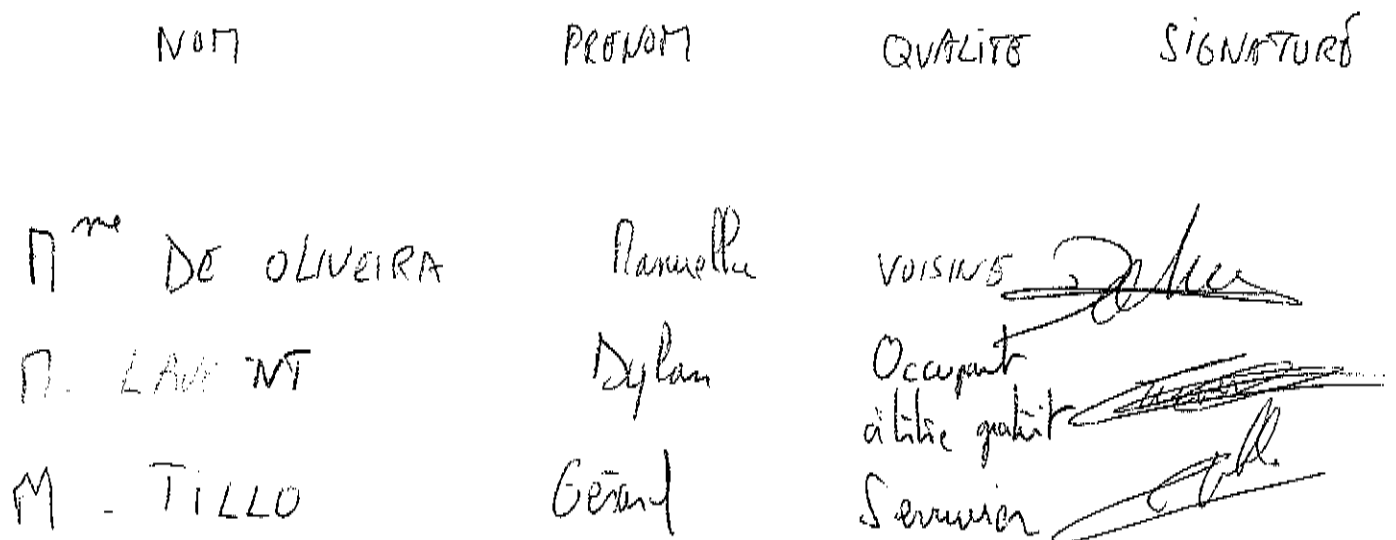 NOM PRENOM QUALITE SIGNATURE
Mme DE OLIVEIRA Manuella VOISINE
M. Dylan Occupant
à titre gratuit
M. TILLO Gérard Serrurier